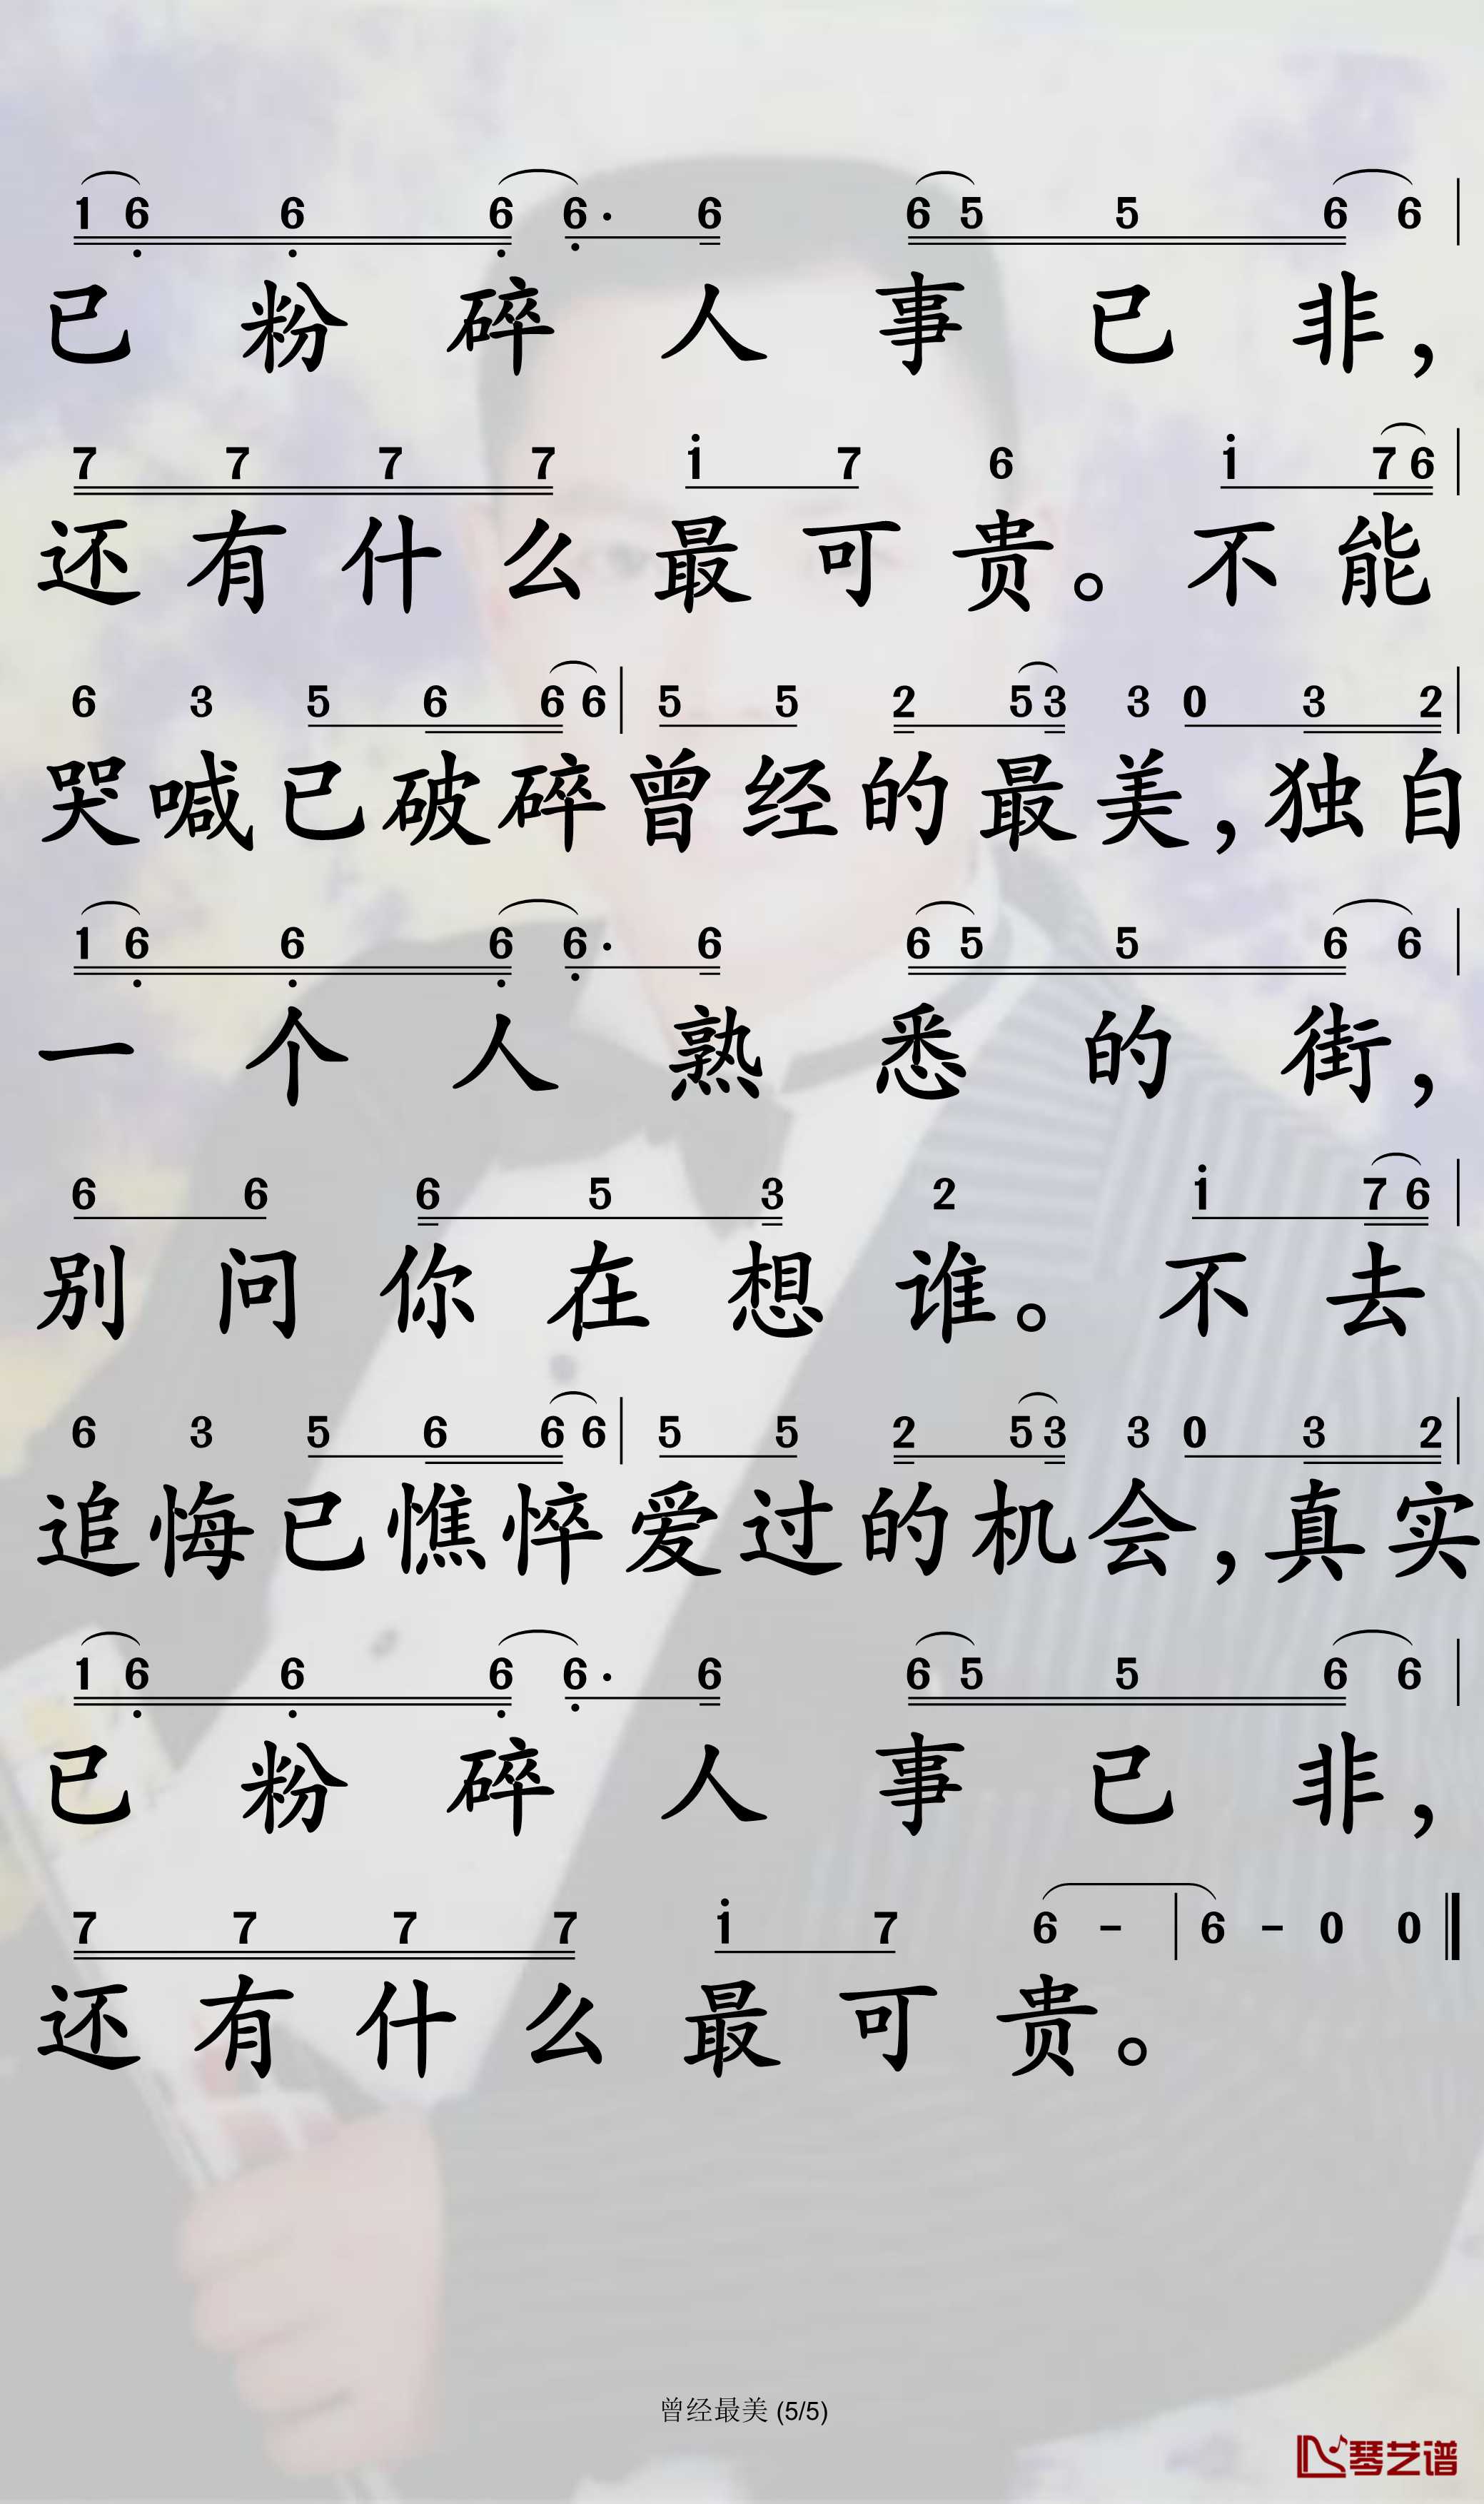 1 6 6 6 6· 6 6 5 5 6 6 |
已粉碎人事已非，
7 7 7 7 i 7 6 i 7 6 |
还有什么最可贵。不能
6 3 5 6 6 6 | 5 5 2 5 3 3 0 3 2 |
哭喊已破碎曾经的最美，独自
1 6 6 6 6· 6 6 5 5 6 6 |
一个人熟悉的街，
6 6 6 5 3 2 i 7 6 |
别问你在想谁。不去
6 3 5 6 6 6 | 5 5 2 5 3 3 0 3 2 |
追悔已憔悴爱过的机会，真实
1 6 6 6 6· 6 6 5 5 6 6 |
已粉碎人事已非，
7 7 7 7 i 7 6 - | 6 - 0 0
还有什么最可贵。
曾经最美 (5/5)
琴艺谱